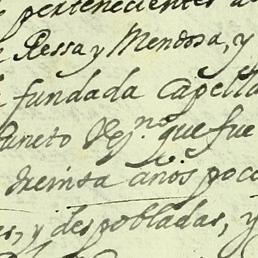 pertenecientes a
Pessa y Mendosa, y
fundada Capella
que fue
treinta años poco
as, y despobladas, y